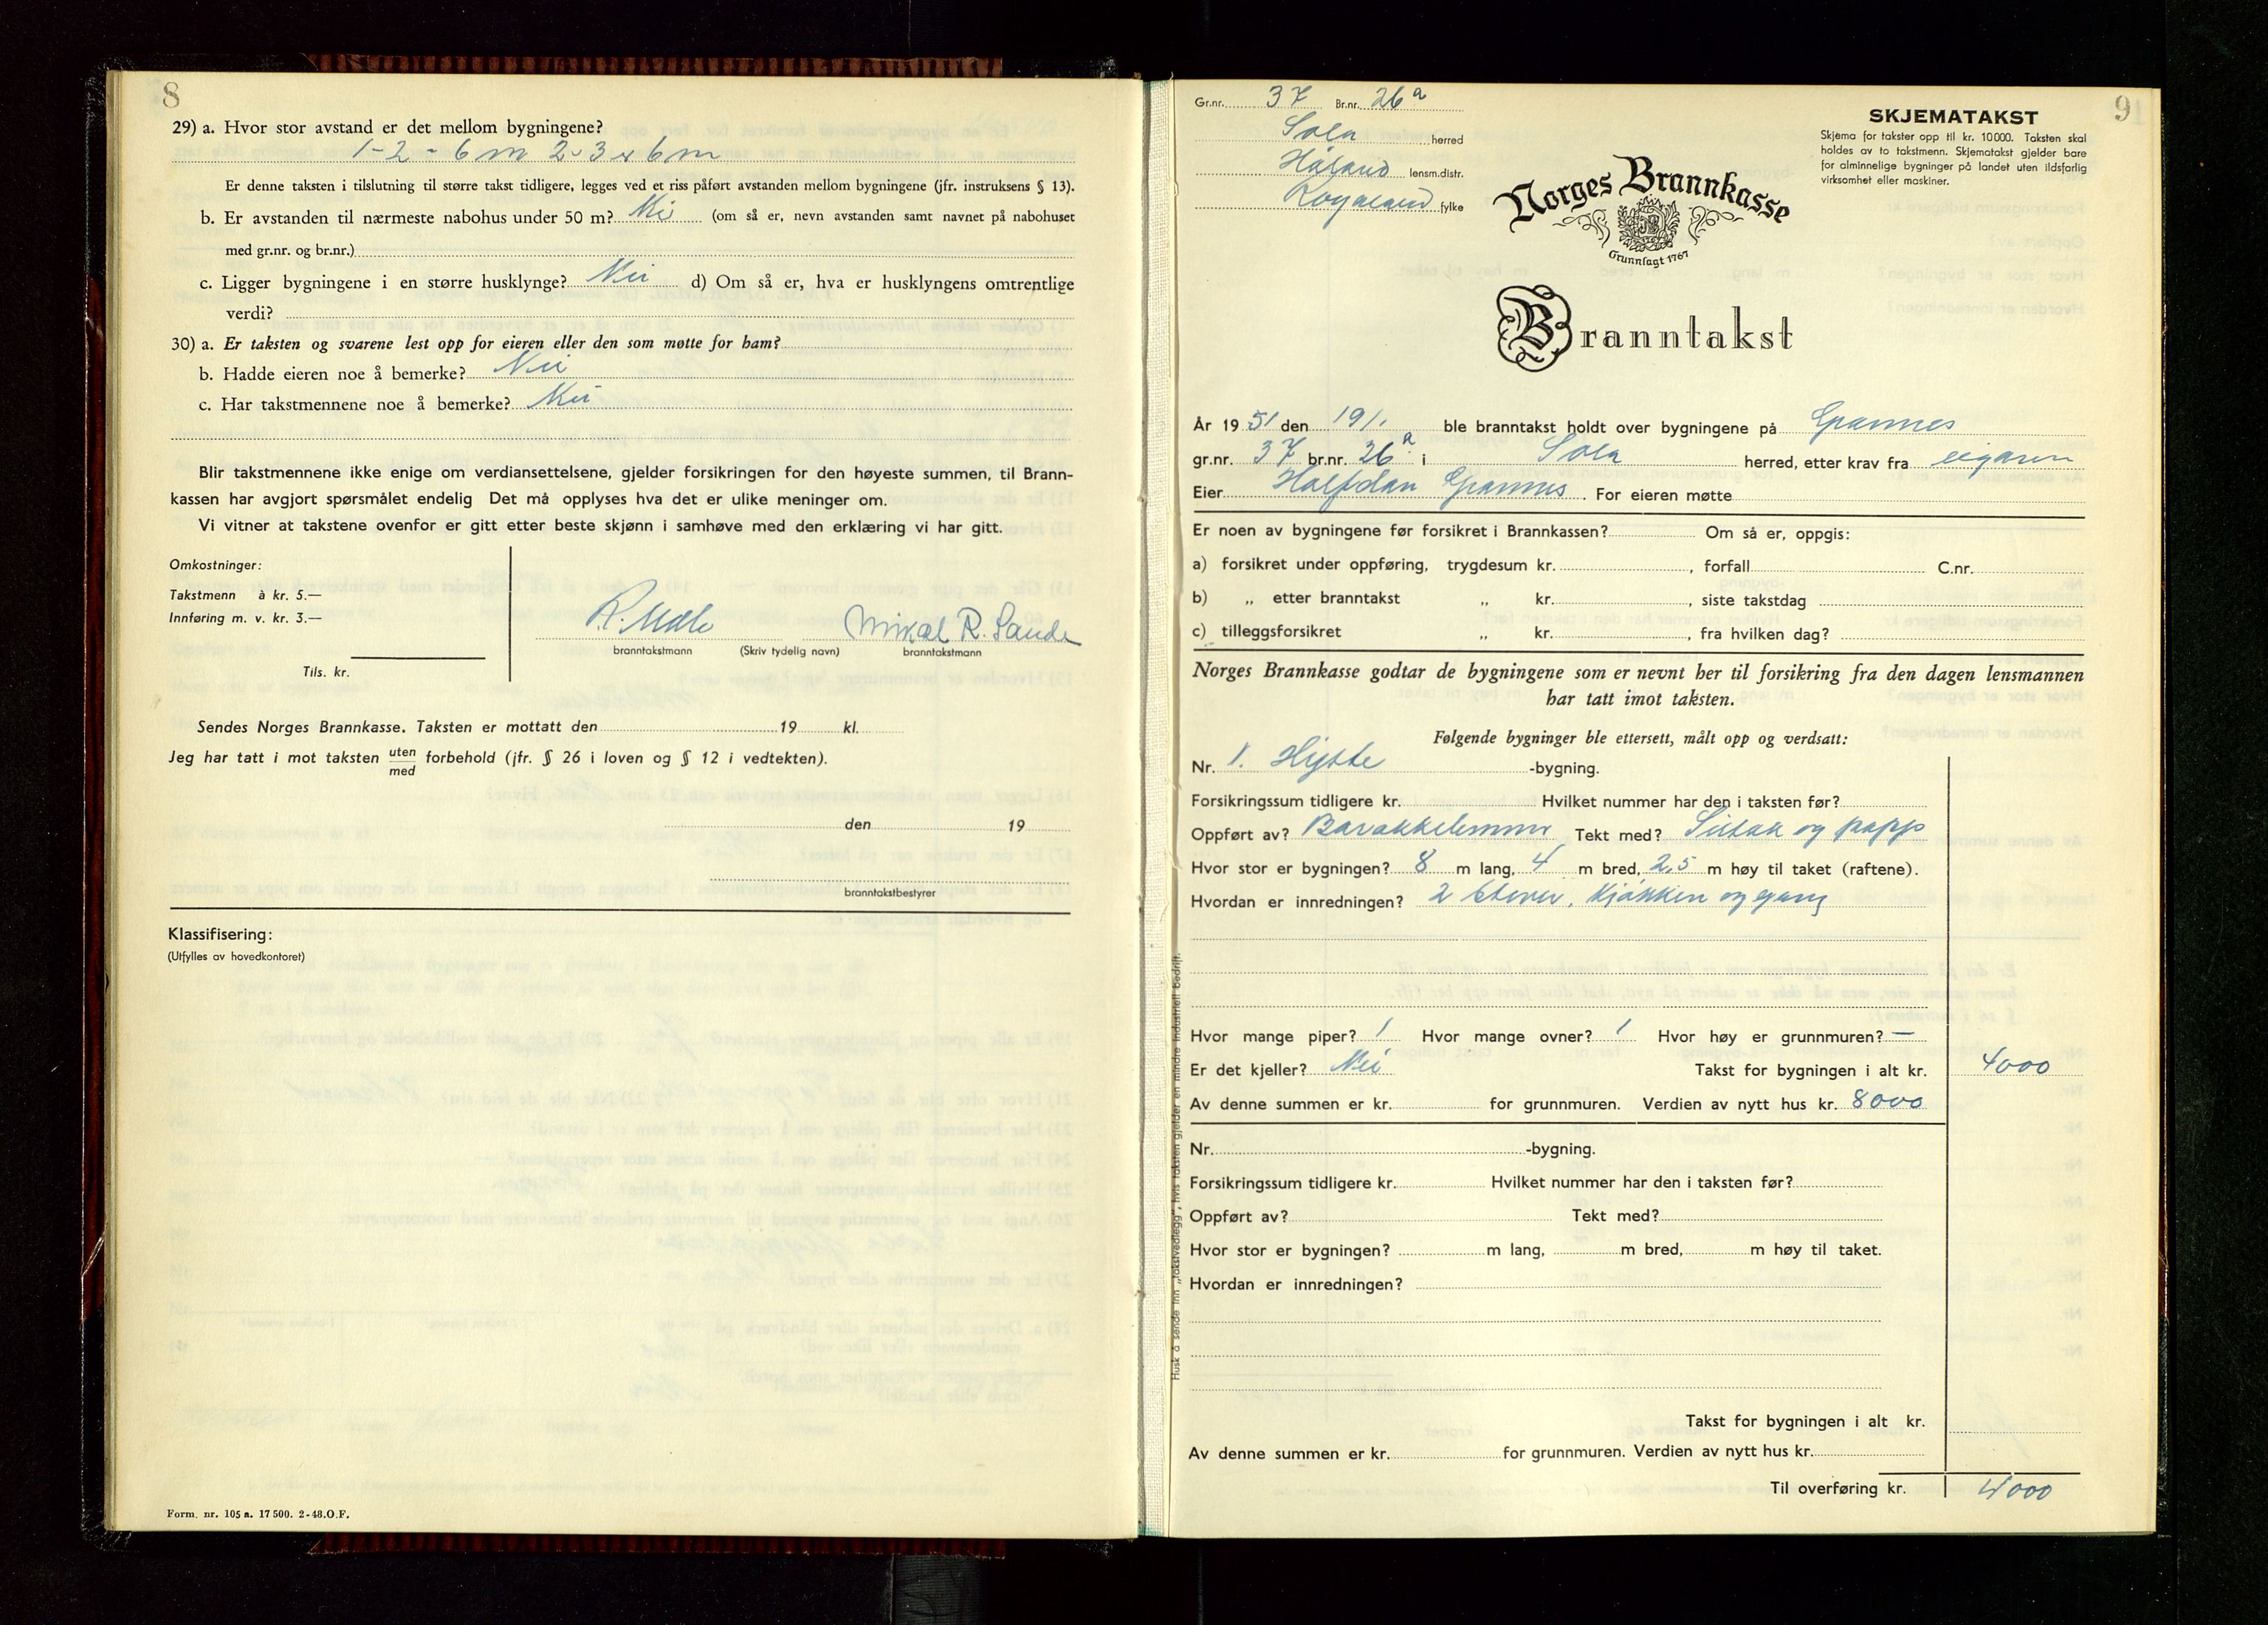 8
29) a. Hvor stor avstand er det mellom bygningene?
1-2 - 6 m 2-3 6 m
Er denne taksten i tilslutning til større takst tidligere, legges ved et riss påført avstanden mellom bygningene (jfr. instruksens § 13).
b. Er avstanden til nærmeste nabohus under 50 m? Nei (om så er, nevn avstanden samt navnet på nabohuset
med gr.nr. og br.nr.)
c. Ligger bygningene i en større husklynge? Nei d) Om så er, hva er husklyngens omtrentlige
verdi?
30) a. Er taksten og svarene lest opp for eieren eller den som møtte for ham?
b. Hadde eieren noe å bemerke? Nei
c. Har takstmennene noe å bemerke? Nei
Blir takstmennene ikke enige om verdiansettelsene, gjelder forsikringen for den høyeste summen, til Brann-
kassen har avgjort spørsmålet endelig Det må opplyses hva det er ulike meninger om.
Vi vitner at takstene ovenfor er gitt etter beste skjønn i samhøve med den erklæring vi har gitt.
Omkostninger:
Takstmenn à kr. 5.—
Innføring m. v. kr. 3.—
Tils. kr.
Mikal R. Sande
branntakstmann (Skriv tydelig navn) branntakstmann
Sendes Norges Brannkasse. Taksten er mottatt den 19 kl.
Jeg har tatt i mot taksten uten/med forbehold (jfr. § 26 i loven og § 12 i vedtekten).
den 19
branntakstbestyrer
Klassifisering:
(Utfylles av hovedkontoret)
Form. nr. 105 a. 17 500. 2-48.O.F.
91
Gr.nr. 37 Br.nr. 26 a
Sola herred
Håland lensm.distr.
Rogaland fylke
SKJEMATAKST
Skjema for takster opp til kr. 10000. Taksten skal
holdes av to takstmenn. Skjematakst gjelder bare
for alminnelige bygninger på landet uten ildsfarlig
virksomhet eller maskiner.
Norges Brannkasse
Grunnlagt 1767
Branntakst
År 19 51 den 19/1. ble branntakst holdt over bygningene på Grannes
gr.nr. 37 br.nr. 26 a i Sola herred, etter krav fra eigaren
Eier Halfdan Grannes. For eieren møtte
Er noen av bygningene før forsikret i Brannkassen? Om så er, oppgis:
a) forsikret under oppføring, trygdesum kr. , forfall C.nr.
b) „ etter branntakst „ kr. , siste takstdag
c) tilleggsforsikret „ kr. , fra hvilken dag?
Norges Brannkasse godtar de bygningene som er nevnt her til forsikring fra den dagen lensmannen
har tatt imot taksten.
Følgende bygninger ble ettersett, målt opp og verdsatt:
Nr. 1. Hytte -bygning.
Forsikringssum tidligere kr. Hvilket nummer har den i taksten før?
Oppført av? Barakkelemmer Tekt med? Sutak og papp
Hvor stor er bygningen? 8 m lang, 4 m bred, 2,5 m høy til taket (raftene).
Hvordan er innredningen? 2 stover, kjøkken og gang
Hvor mange piper? 1 Hvor mange ovner? 1 Hvor høy er grunnmuren? —
Er det kjeller? Nei Takst for bygningen i alt kr. 4000
Av denne summen er kr. for grunnmuren. Verdien av nytt hus kr. 8000
Nr. -bygning.
Forsikringssum tidligere kr. Hvilket nummer har den i taksten før?
Oppført av? Tekt med?
Hvor stor er bygningen? m lang, m bred, m høy til taket.
Hvordan er innredningen?
Takst for bygningen i alt kr.
Av denne summen er kr. for grunnmuren. Verdien av nytt hus kr.
Til overføring kr. 4000
Husk å sende inn „takstvedlegg“, hvis taksten gjelder en mindre industriell bedrift.